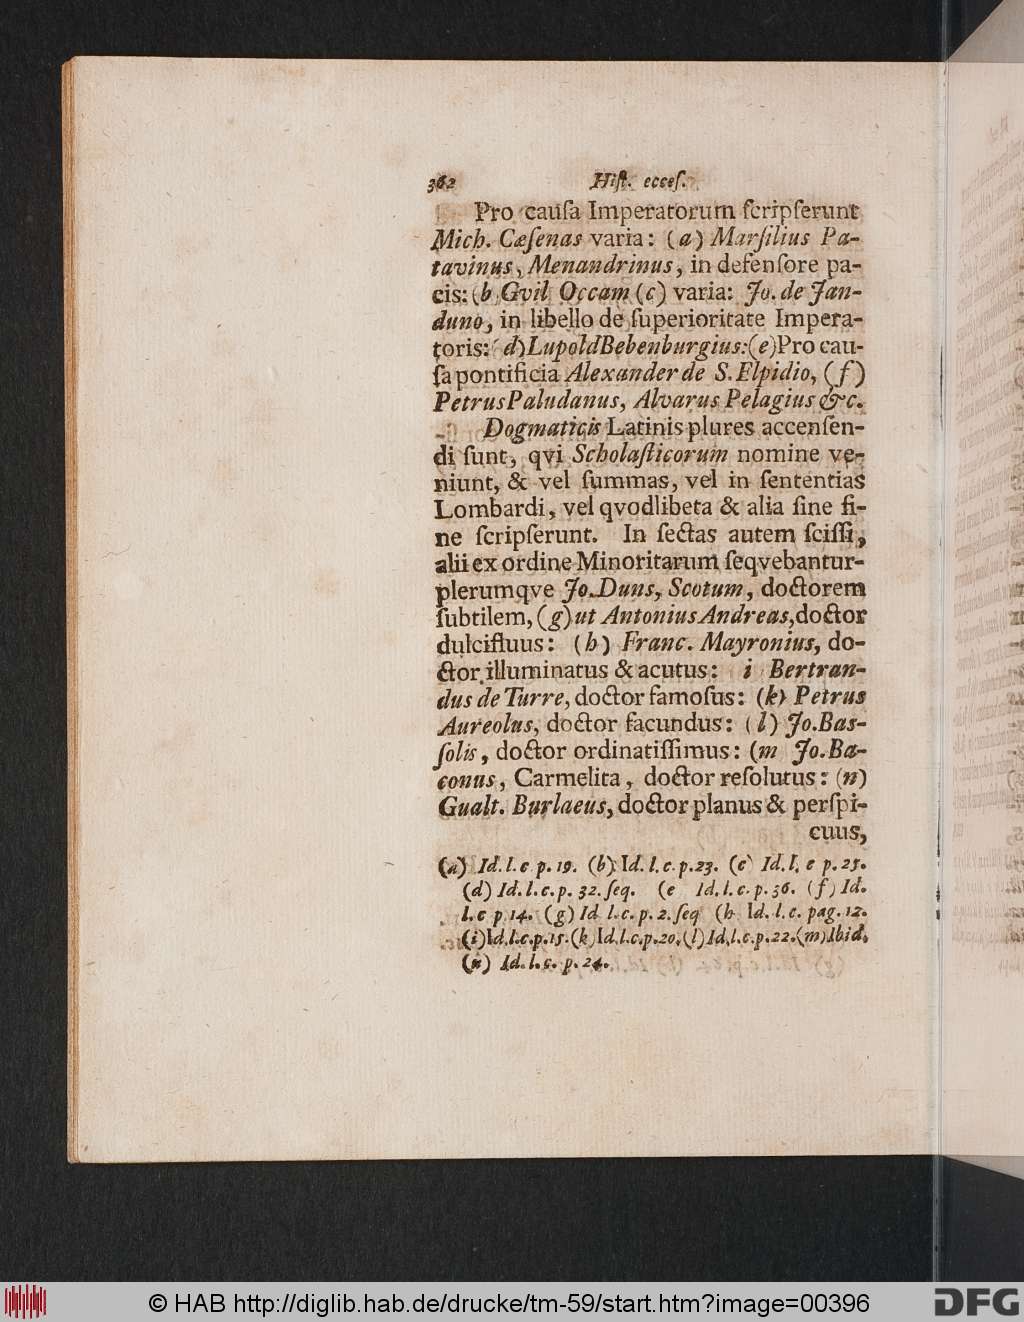 362 Hiſt. ecceſ.
Pro cauſa Imperatorum ſcripſerunt
Mich. Cæſenas varia: (a) Marſilius Pa-
tavinus, Menandrinus, in defenſore pa-
cis: (b Gvil Occam (c) varia: Jo. de Jan-
duno, in libello de ſuperioritate Impera-
toris: d) Lupold Bebenburgius: (e) Pro cau-
ſa pontificia Alexander de S. Elpidio, (f)
Petrus Paludanus, Alvarus Pelagius &c.
Dogmaticis Latinis plures accenſen-
di ſunt, qvi Scholaſticorum nomine ve-
niunt, & vel ſummas, vel in ſententias
Lombardi, vel qvodlibeta & alia ſine fi-
ne ſcripſerunt. In ſectas autem ſciſſi,
alii ex ordine Minoritarum ſeqvebantur-
plerumqve Jo. Duns, Scotum, doctorem
ſubtilem, (g) ut Antonius Andreas, doctor
dulcifluus: (h) Franc. Mayronius, do-
ctor illuminatus & acutus: i Bertran-
dus de Turre, doctor famoſus: (k) Petrus
Aureolus, doctor facundus: (l) Jo. Baſ-
ſolis, doctor ordinatiſſimus: (m Jo. Ba-
conus, Carmelita, doctor reſolutus: (n)
Gualt. Burlaeus, doctor planus & perſpi-
cuus,
(a) Id. l. c p. 19. (b) Id. l. c. p. 23. (c) Id. l. c p. 25.
(d) Id. l. c. p. 32. ſeq. (e Id. l. c. p. 36. (f) Id.
l. c p 14. (g) Id l. c. p. 2. ſeq (h Id. l. c. pag. 12.
(i) Id. l. c. p. 15. (k) Id. l. c. p. 20. (l) Id. l. c. p. 22. (m) Ibid.
(n) Id. l. c. p. 24.
© HAB http://diglib.hab.de/drucke/tm-59/start.htm?image=00396
DFG